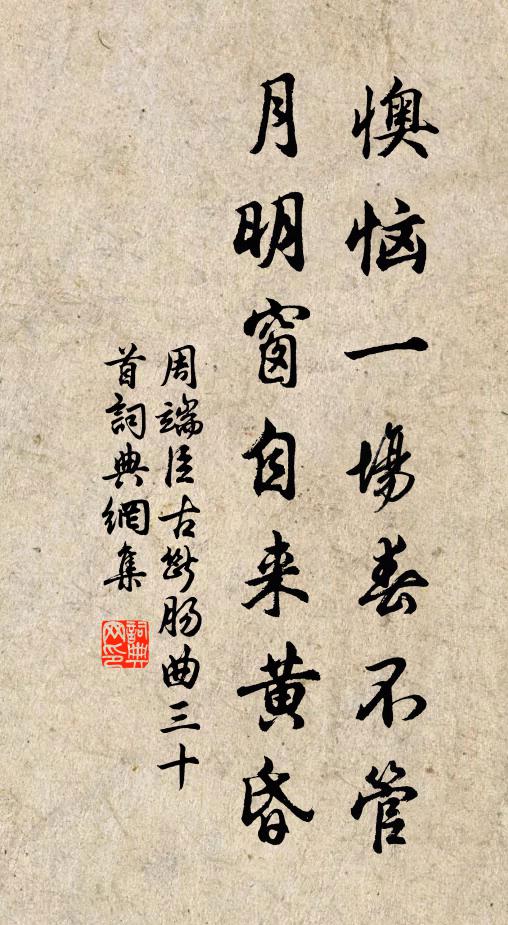 懊恼一場春不管
月明窗自来黄昏
周端臣古断肠曲三十
首詞典網集
詞典
网印